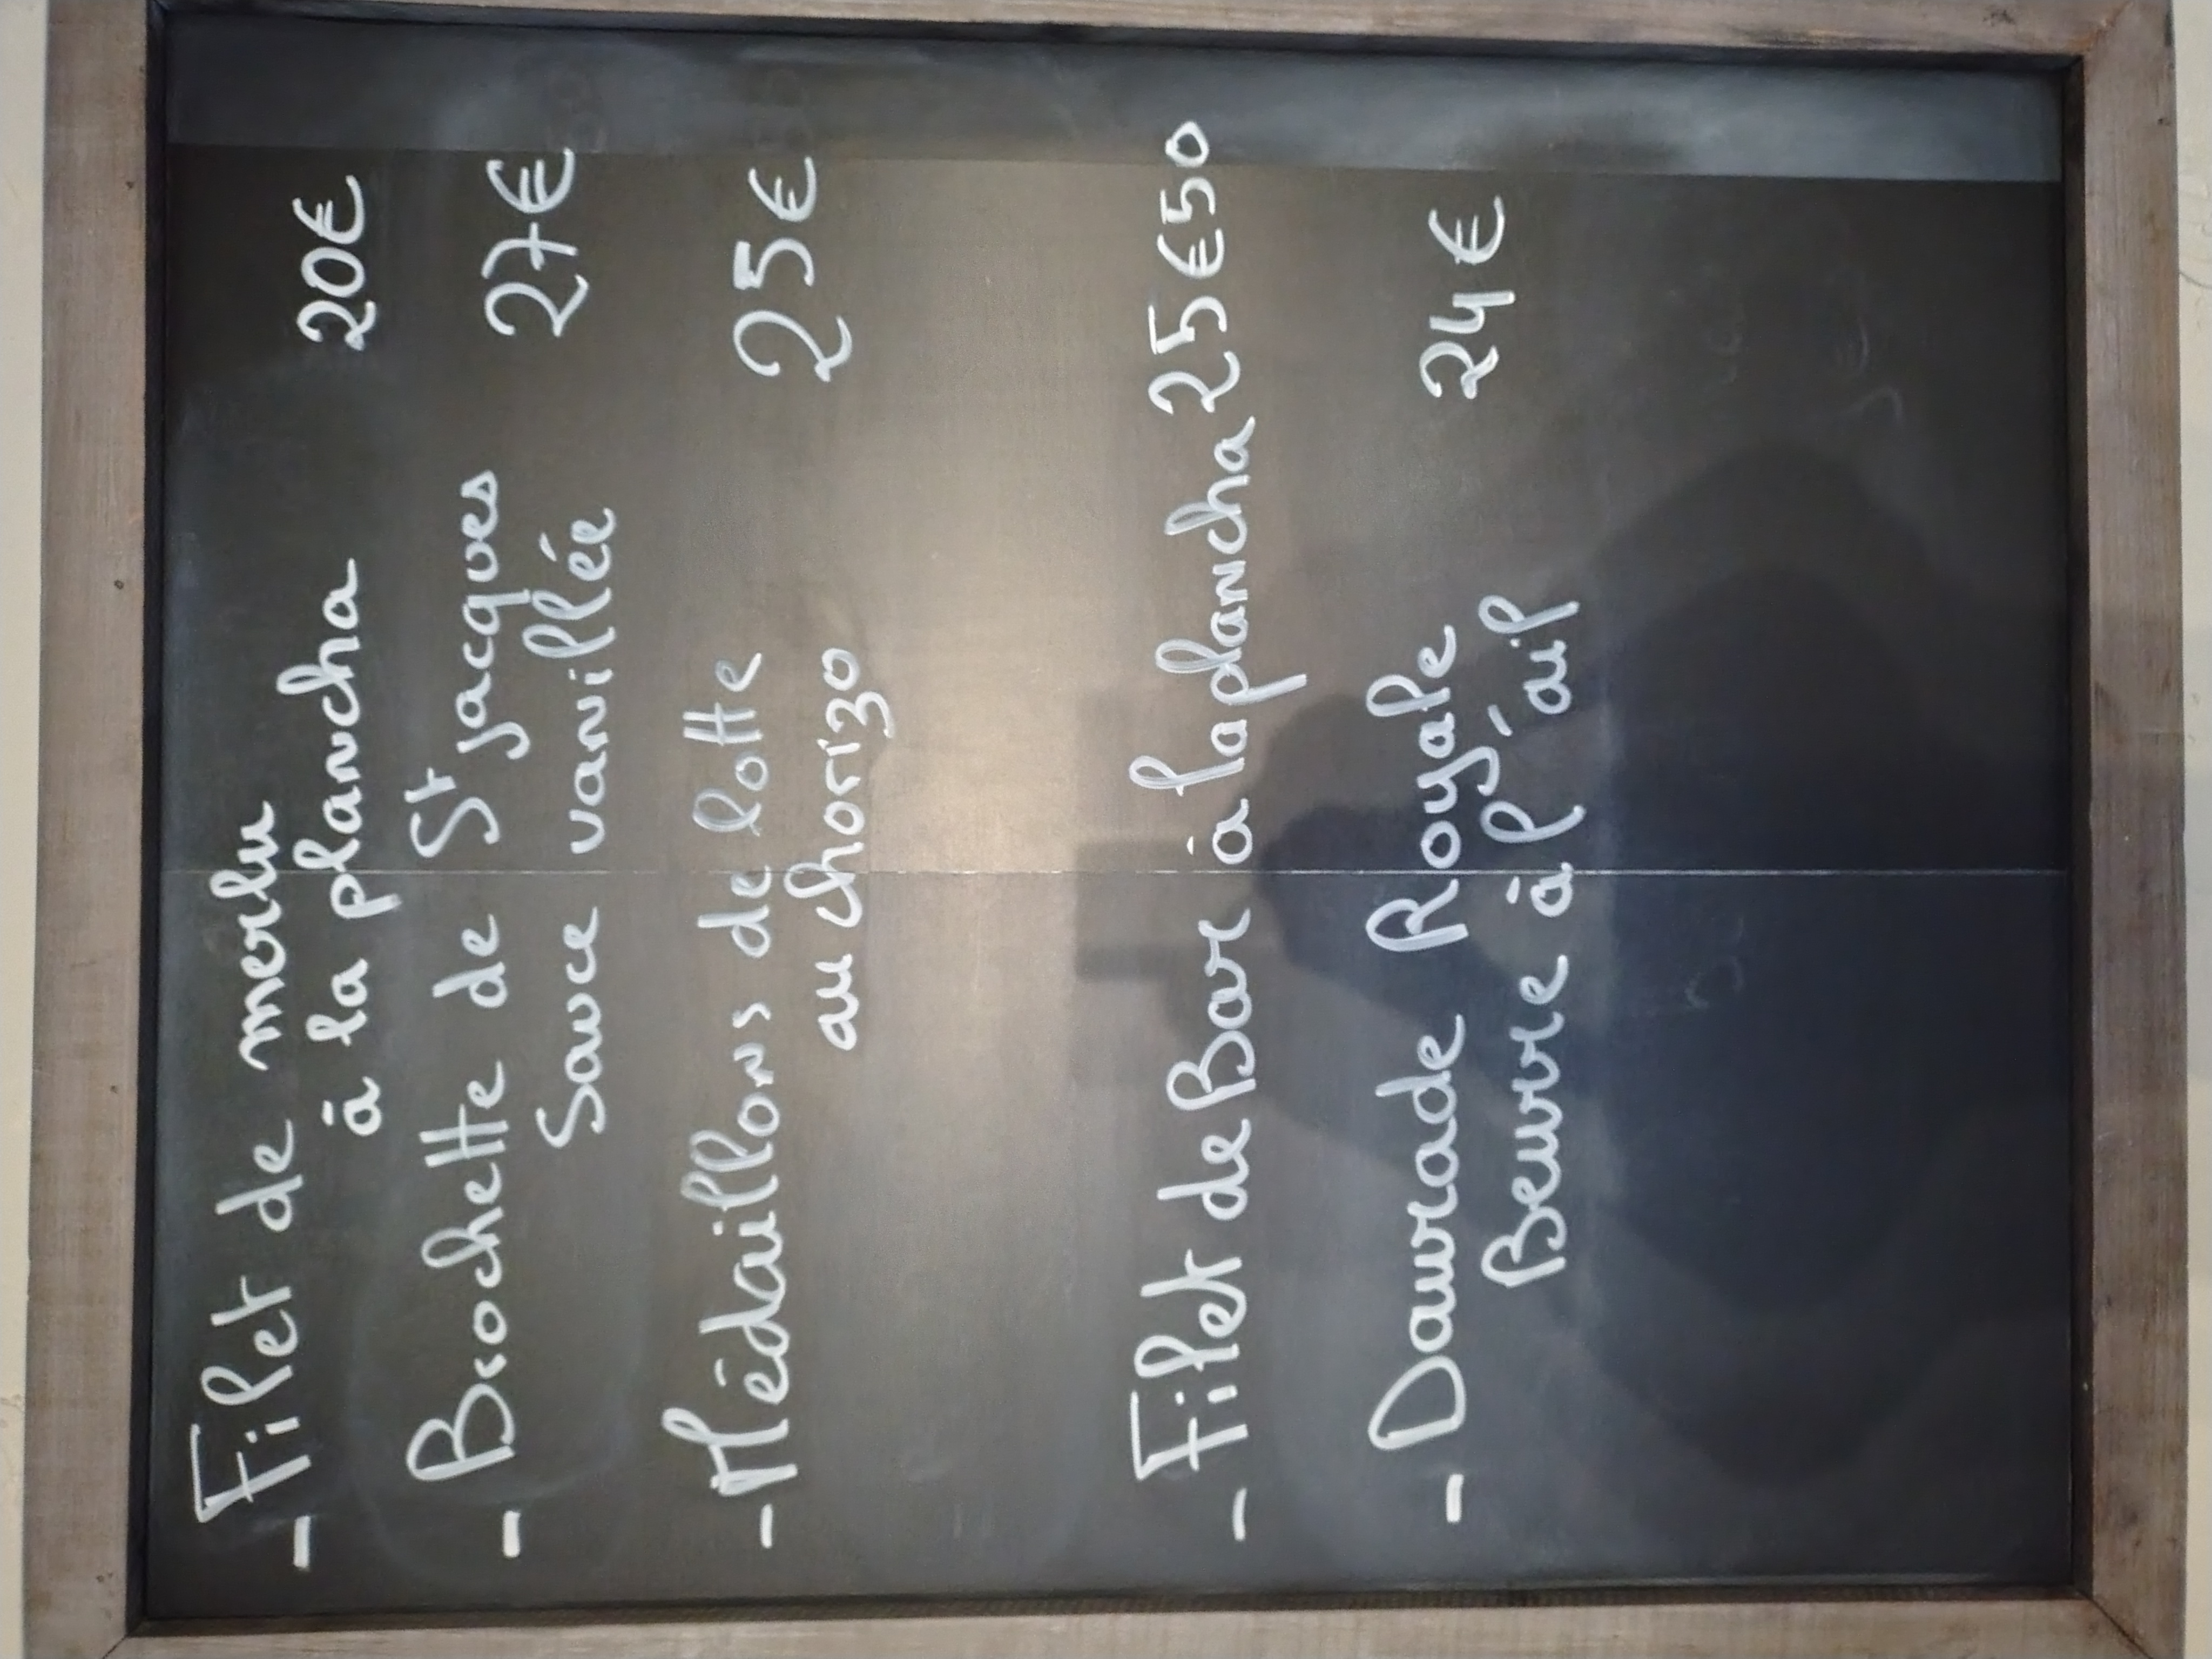 - Filet de merlu
à la plancha 20€
- Brochette de St Jacques 27€
Sauce vanillée
- Médaillons de lotte 25€
au chorizo
- Filet de Bar à la plancha 25€50
- Daurade Royale 24€
Beurre à l'ail